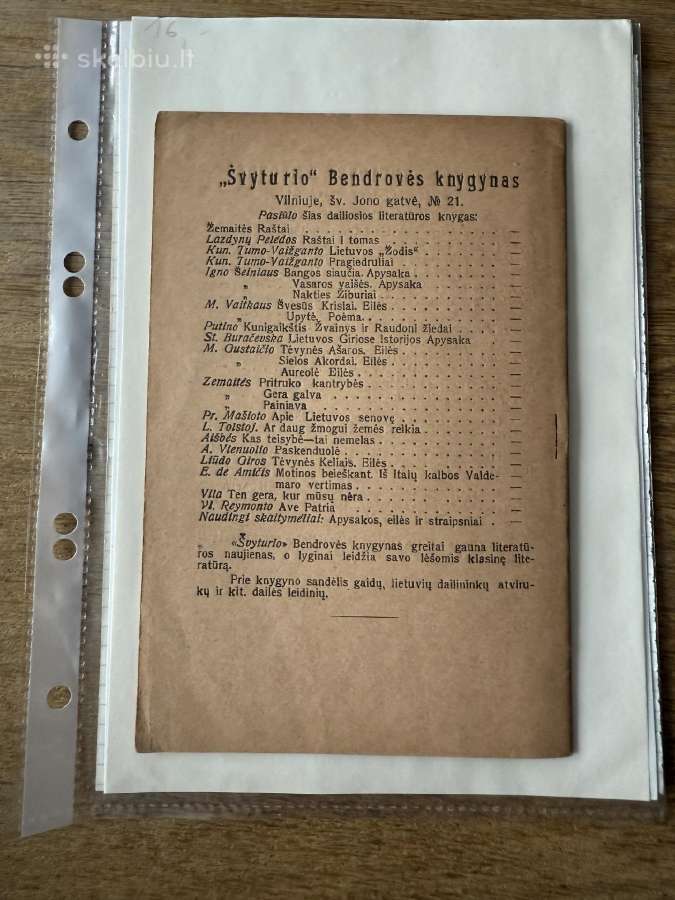 16,-
skelbiu.lt
„Švyturio“ Bendrovės knygynas
Vilniuje, šv. Jono gatvė, № 21.
Pasiūlo šias dailiosios literatūros knygas:
Žemaitės Raštai
Lazdynų Pelėdos Raštai I tomas
Kun. Tumo-Vaižganto Lietuvos „Žodis“
Kun. Tumo-Vaižganto Pragiedruliai
Igno Šeiniaus Bangos siaučia. Apysaka
„ Vasaros vaišės. Apysaka
„ Nakties Žiburiai
M. Vaitkaus Šviesūs Krislai. Eilės
„ Upytė, Poema.
Putino Kunigaikštis Žvainys ir Raudoni žiedai
St. Buračevska Lietuvos Giriose Istorijos Apysaka
M. Gustaičio Tėvynės Ašaros. Eilės
„ Sielos Akordai. Eilės
Aureolė Eilės
Zemaitės Pritruko kantrybės
„ Gera galva
„ Painiava
Pr. Mašioto Apie Lietuvos senovę
L. Tolstoj. Ar daug žmogui žemės reikia
Aišbės Kas teisybė—tai nemelas
A. Vienuolio Paskenduolė
Liūdo Giros Tėvynės Keliais. Eilės
E. de Amičis Motinos beieškant. Iš Italų kalbos Valde-
maro vertimas
Vila Ten gera, kur mūsų nėra
Vl. Reymonto Ave Patria
Naudingi skaitymėliai: Apysakos, eilės ir straipsniai
„ «Švyturio» Bendrovės knygynas greitai gauna literatū-
ros naujienas, o lyginai leidžia savo lėšomis klasinę lite-
ratūrą.
Prie knygyno sandėlis gaidų, lietuvių dailininkų atviru-
kų ir kit. dailės leidinių.